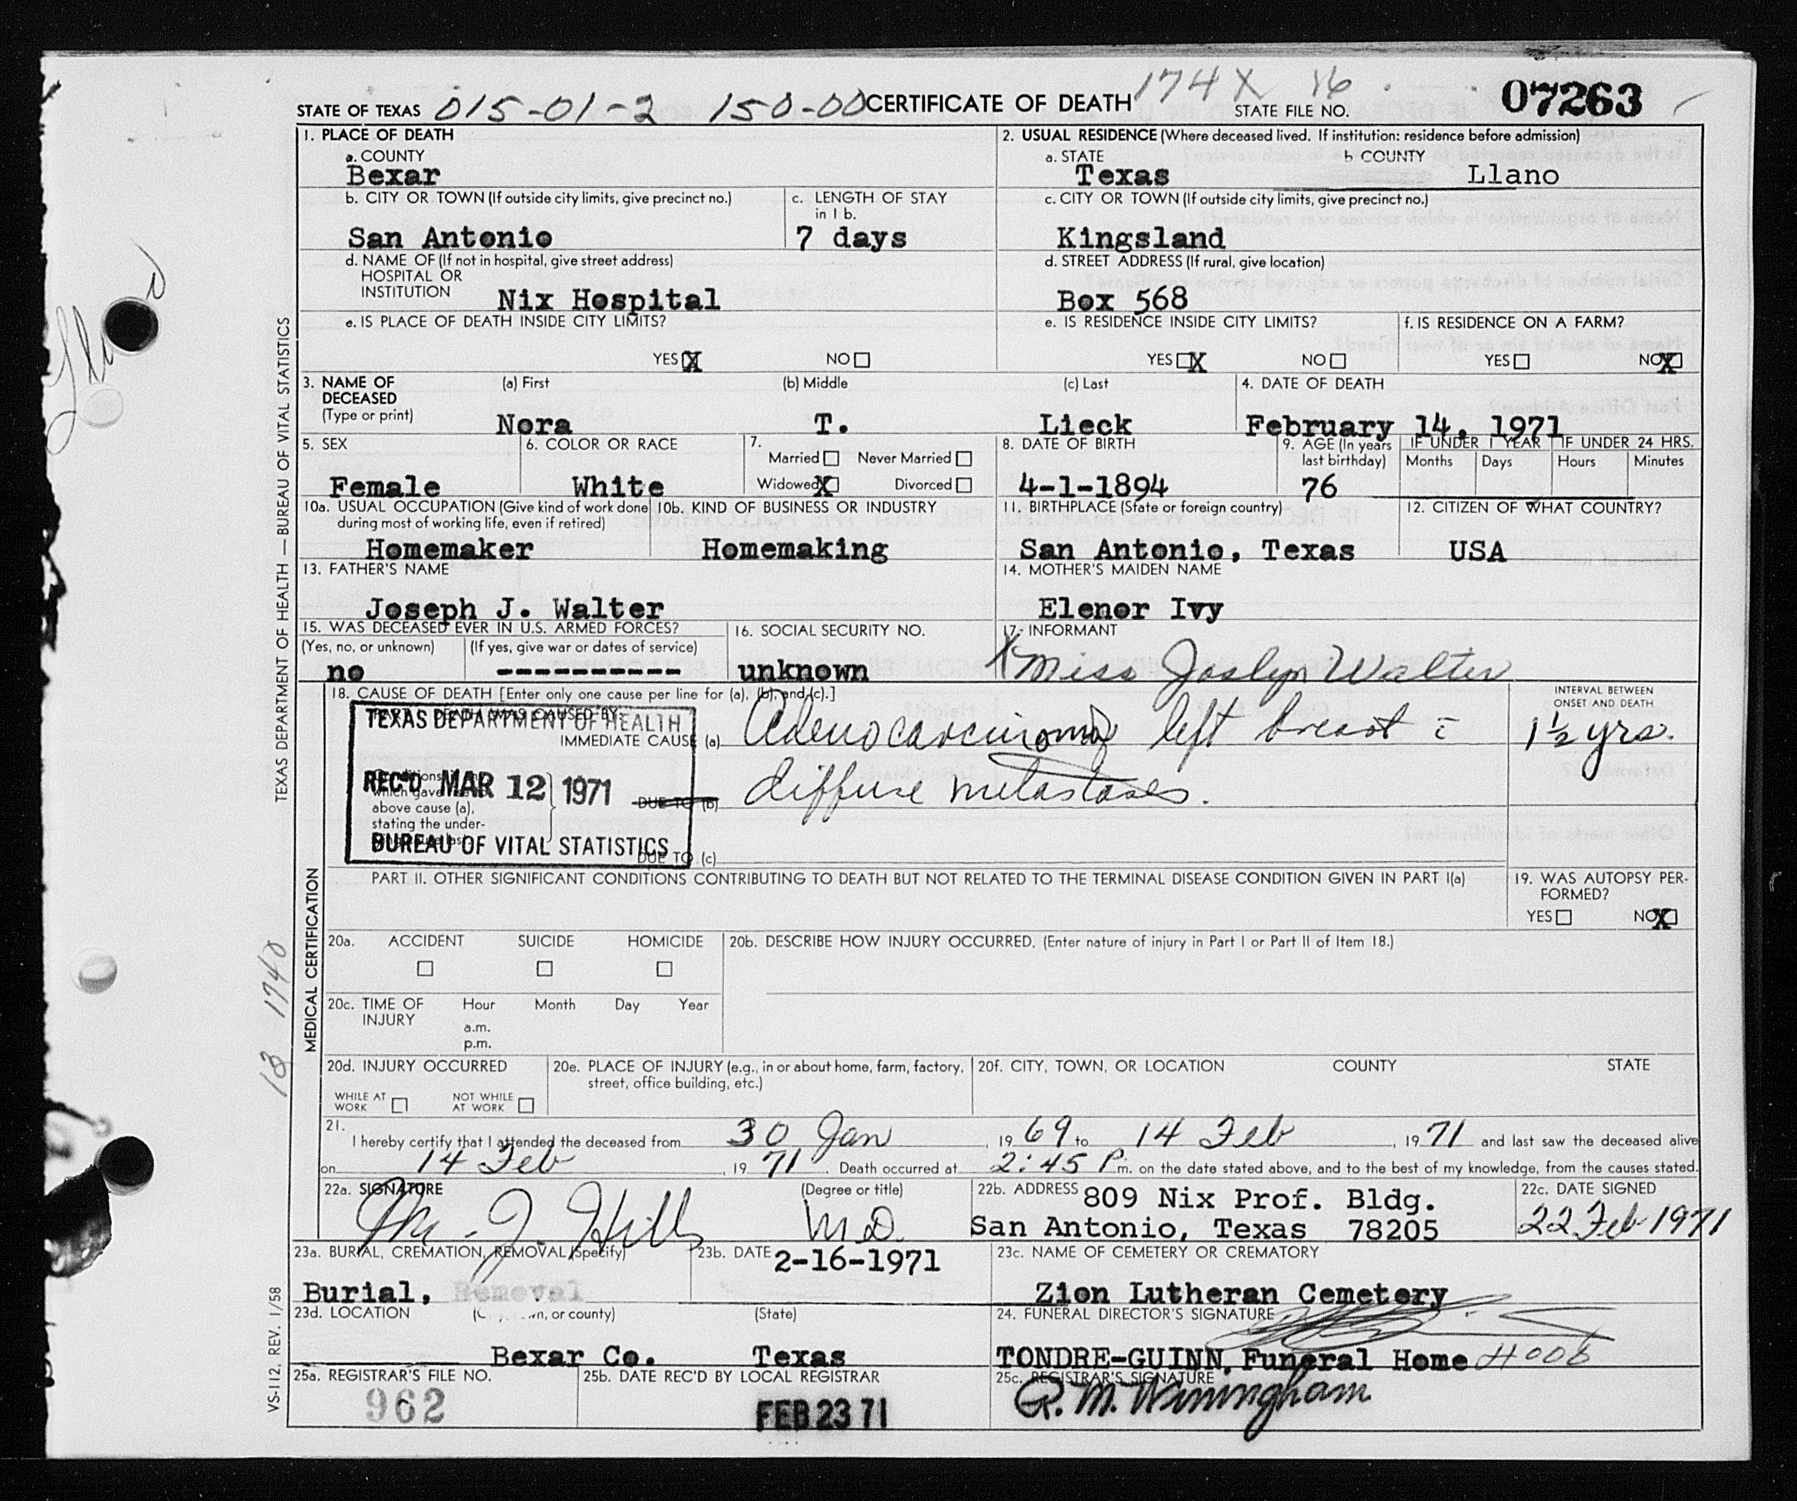 174X 16
STATE OF TEXAS 015-01-2 150-00 CERTIFICATE OF DEATH STATE FILE NO. 07263
1. PLACE OF DEATH
a. COUNTY
Bexar
2. USUAL RESIDENCE (Where deceased lived. If institution: residence before admission)
a. STATE b. COUNTY
Texas Llano
b. CITY OR TOWN (If outside city limits, give precinct no.)
San Antonio
c. LENGTH OF STAY
in 1 b.
7 days
c. CITY OR TOWN (If outside city limits, give precinct no.)
Kingsland
d. NAME OF (If not in hospital, give street address)
HOSPITAL OR
INSTITUTION Nix Hospital
d. STREET ADDRESS (If rural, give location)
Box 568
e. IS PLACE OF DEATH INSIDE CITY LIMITS?
YES X NO
e. IS RESIDENCE INSIDE CITY LIMITS?
YES X NO
f. IS RESIDENCE ON A FARM?
YES NO X
3. NAME OF
DECEASED
(Type or print)
(a) First (b) Middle (c) Last
Nora T. Lieck
4. DATE OF DEATH
February 14, 1971
5. SEX
Female
6. COLOR OR RACE
White
7.
Married Never Married
Widowed X Divorced
8. DATE OF BIRTH
4-1-1894
9. AGE (In years
last birthday)
76
IF UNDER 1 YEAR IF UNDER 24 HRS.
Months Days Hours Minutes
10a. USUAL OCCUPATION (Give kind of work done
during most of working life, even if retired)
Homemaker
10b. KIND OF BUSINESS OR INDUSTRY
Homemaking
11. BIRTHPLACE (State or foreign country)
San Antonio, Texas
12. CITIZEN OF WHAT COUNTRY?
USA
13. FATHER'S NAME
Joseph J. Walter
14. MOTHER'S MAIDEN NAME
Elenor Ivy
15. WAS DECEASED EVER IN U.S. ARMED FORCES?
(Yes, no, or unknown) (If yes, give war or dates of service)
no ----------
16. SOCIAL SECURITY NO.
unknown
17. INFORMANT
X Miss Joslyn Walter
18. CAUSE OF DEATH [Enter only one cause per line for (a), (b), and (c).]
DEATH WAS CAUSED BY:
IMMEDIATE CAUSE (a) Adenocarcinoma left breast c̄
Conditions
which gave
above cause (a),
stating the under-
DUE TO (b) diffuse metastases.
DUE TO (c)
TEXAS DEPARTMENT OF HEALTH
REC'D MAR 12 1971
BUREAU OF VITAL STATISTICS
INTERVAL BETWEEN
ONSET AND DEATH
1 1/2 yrs.
PART II. OTHER SIGNIFICANT CONDITIONS CONTRIBUTING TO DEATH BUT NOT RELATED TO THE TERMINAL DISEASE CONDITION GIVEN IN PART I(a)
19. WAS AUTOPSY PER-
FORMED?
YES NO X
20a. ACCIDENT SUICIDE HOMICIDE
20b. DESCRIBE HOW INJURY OCCURRED. (Enter nature of injury in Part I or Part II of Item 18.)
20c. TIME OF
INJURY
Hour Month Day Year
a.m.
p.m.
20d. INJURY OCCURRED
WHILE AT
WORK
NOT WHILE
AT WORK
20e. PLACE OF INJURY (e.g., in or about home, farm, factory,
street, office building, etc.)
20f. CITY, TOWN, OR LOCATION COUNTY STATE
21.
I hereby certify that I attended the deceased from 30 Jan, 1969 to 14 Feb, 1971 and last saw the deceased alive
on 14 Feb, 1971. Death occurred at 2:45 P m. on the date stated above, and to the best of my knowledge, from the causes stated.
22a. SIGNATURE (Degree or title)
M. J. Hills M.D.
22b. ADDRESS 809 Nix Prof. Bldg.
San Antonio, Texas 78205
22c. DATE SIGNED
22 Feb 1971
23a. BURIAL, CREMATION, REMOVAL (Specify)
Burial, Removal
23b. DATE 2-16-1971
23c. NAME OF CEMETERY OR CREMATORY
Zion Lutheran Cemetery
23d. LOCATION or county) (State)
Bexar Co. Texas
24. FUNERAL DIRECTOR'S SIGNATURE
TONDRE-GUINN, Funeral Home
25a. REGISTRAR'S FILE NO.
962
25b. DATE REC'D BY LOCAL REGISTRAR
FEB 23 71
25c. REGISTRAR'S SIGNATURE
TEXAS DEPARTMENT OF HEALTH — BUREAU OF VITAL STATISTICS
MEDICAL CERTIFICATION
VS-112, REV. 1/58
13 1740